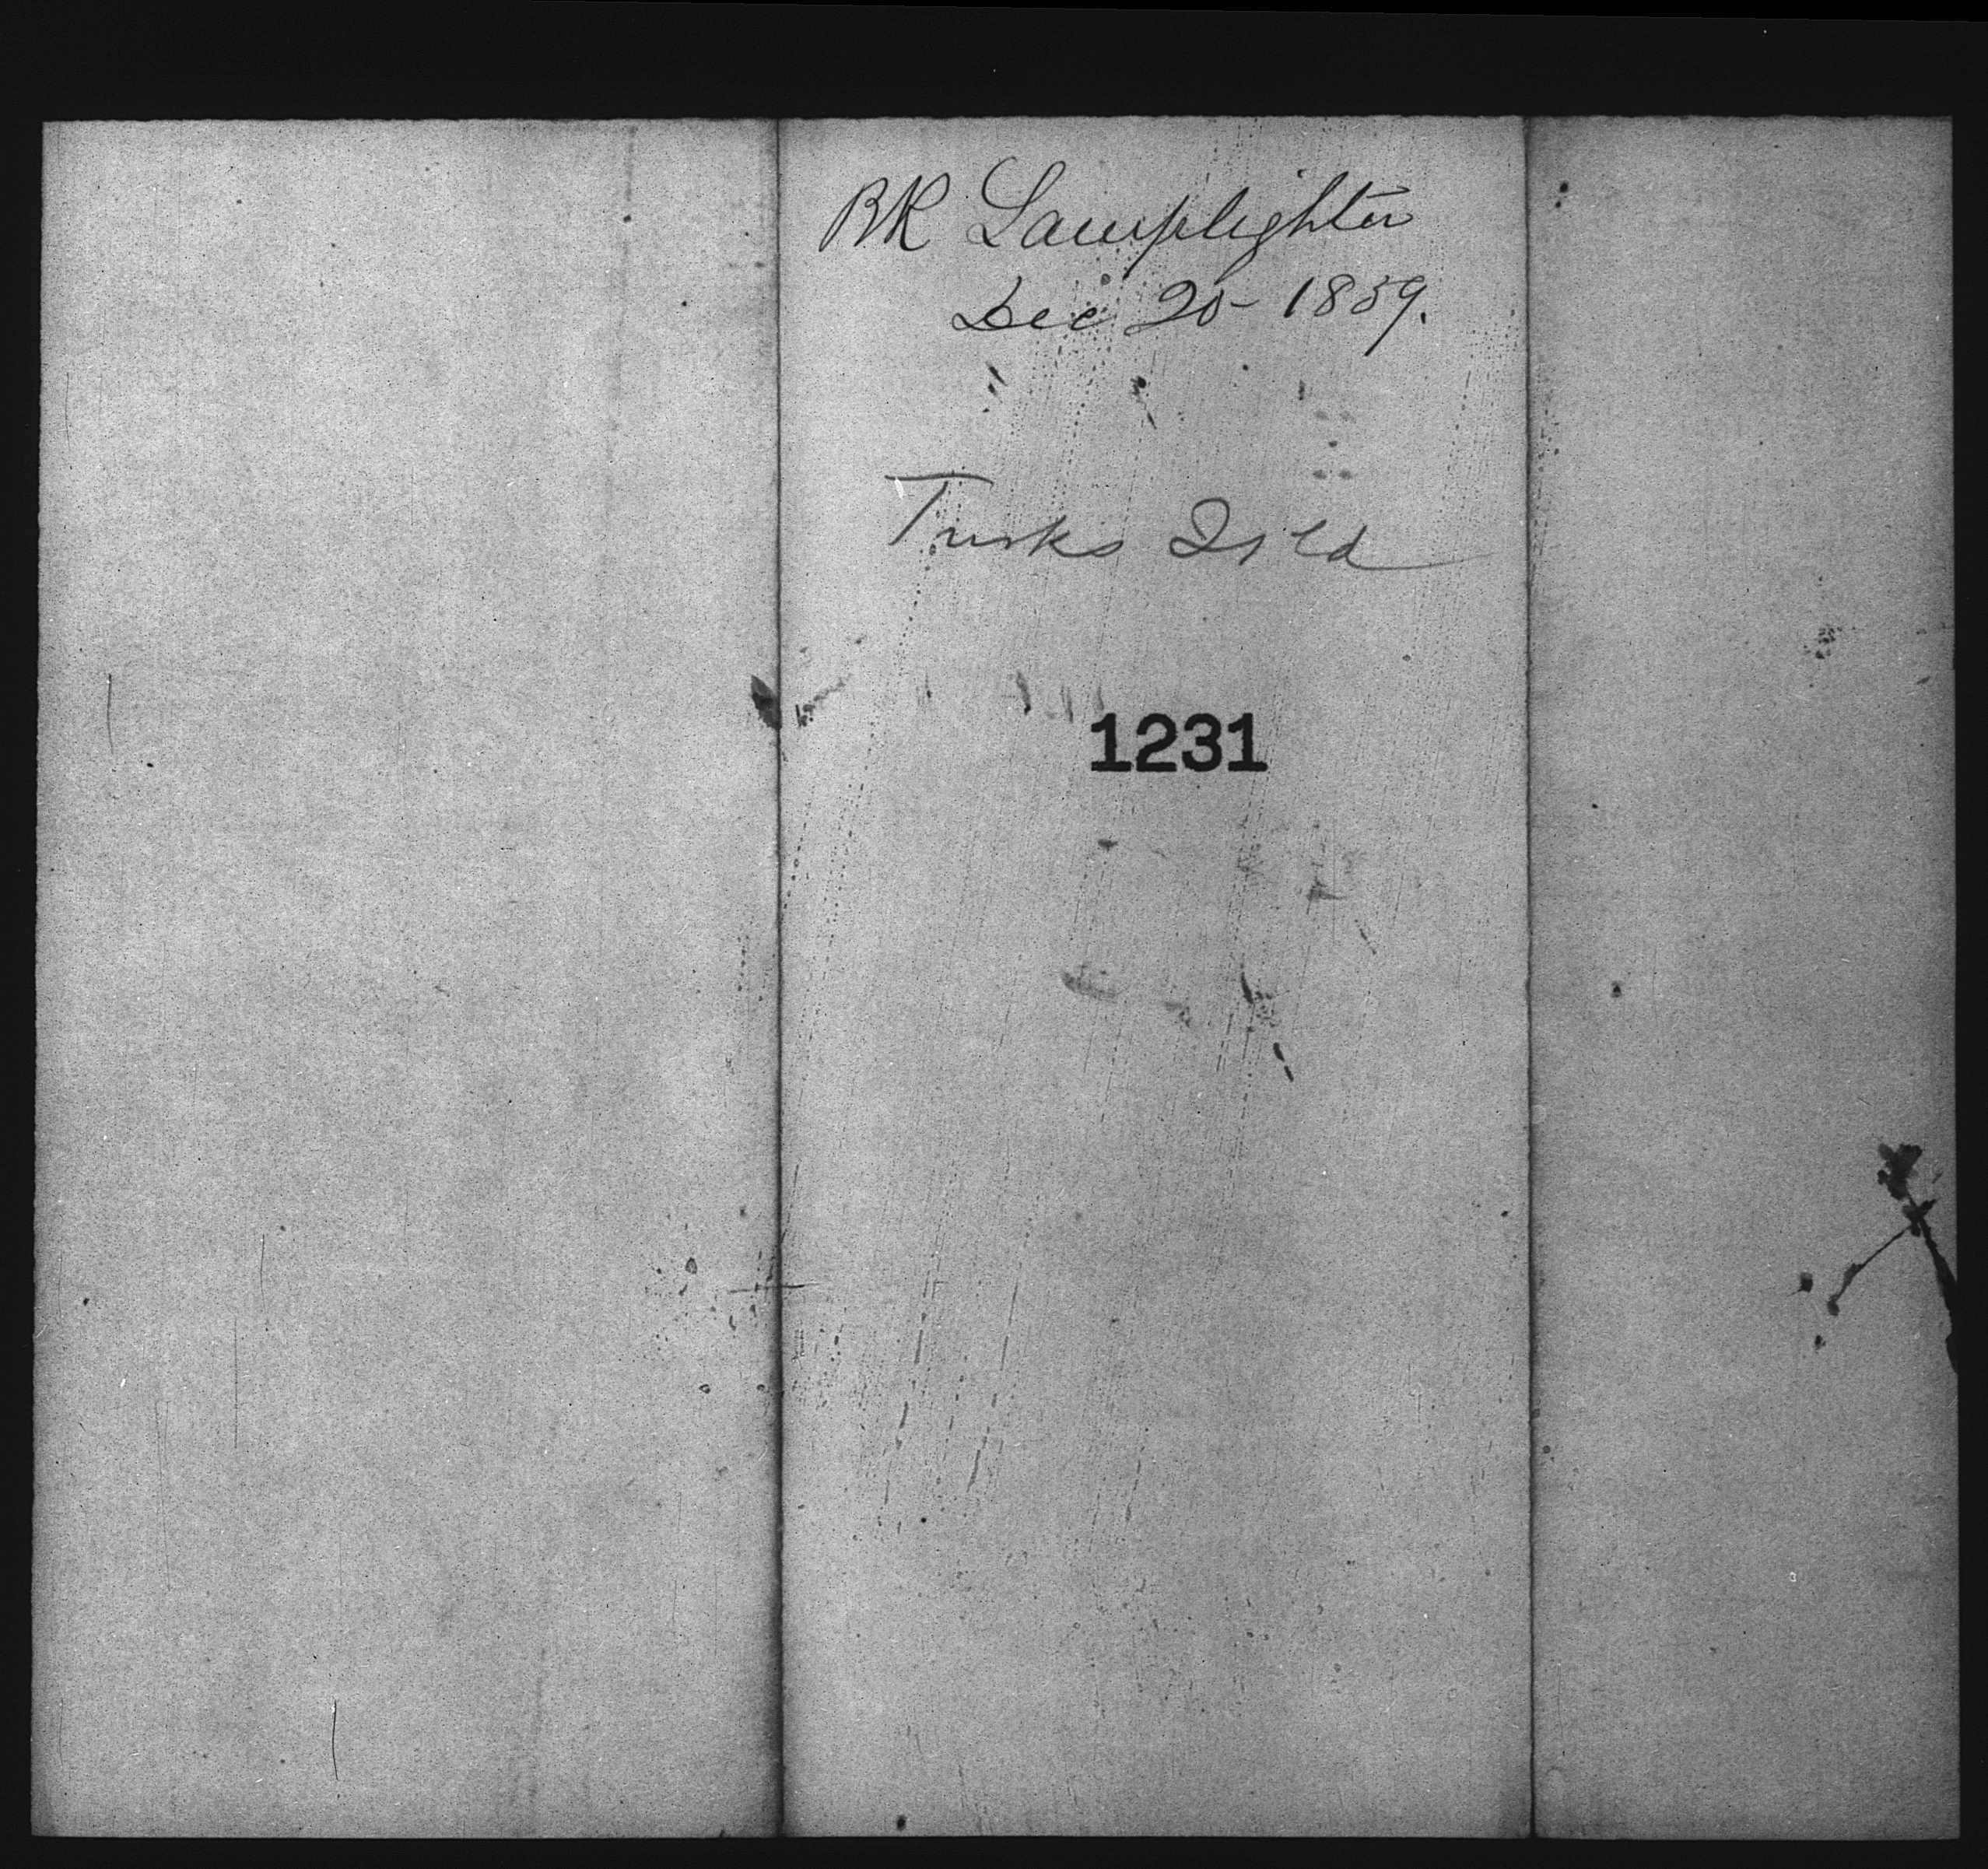 BK Lamplighter
Dec 20 - 1859.
Turks Isld
1231